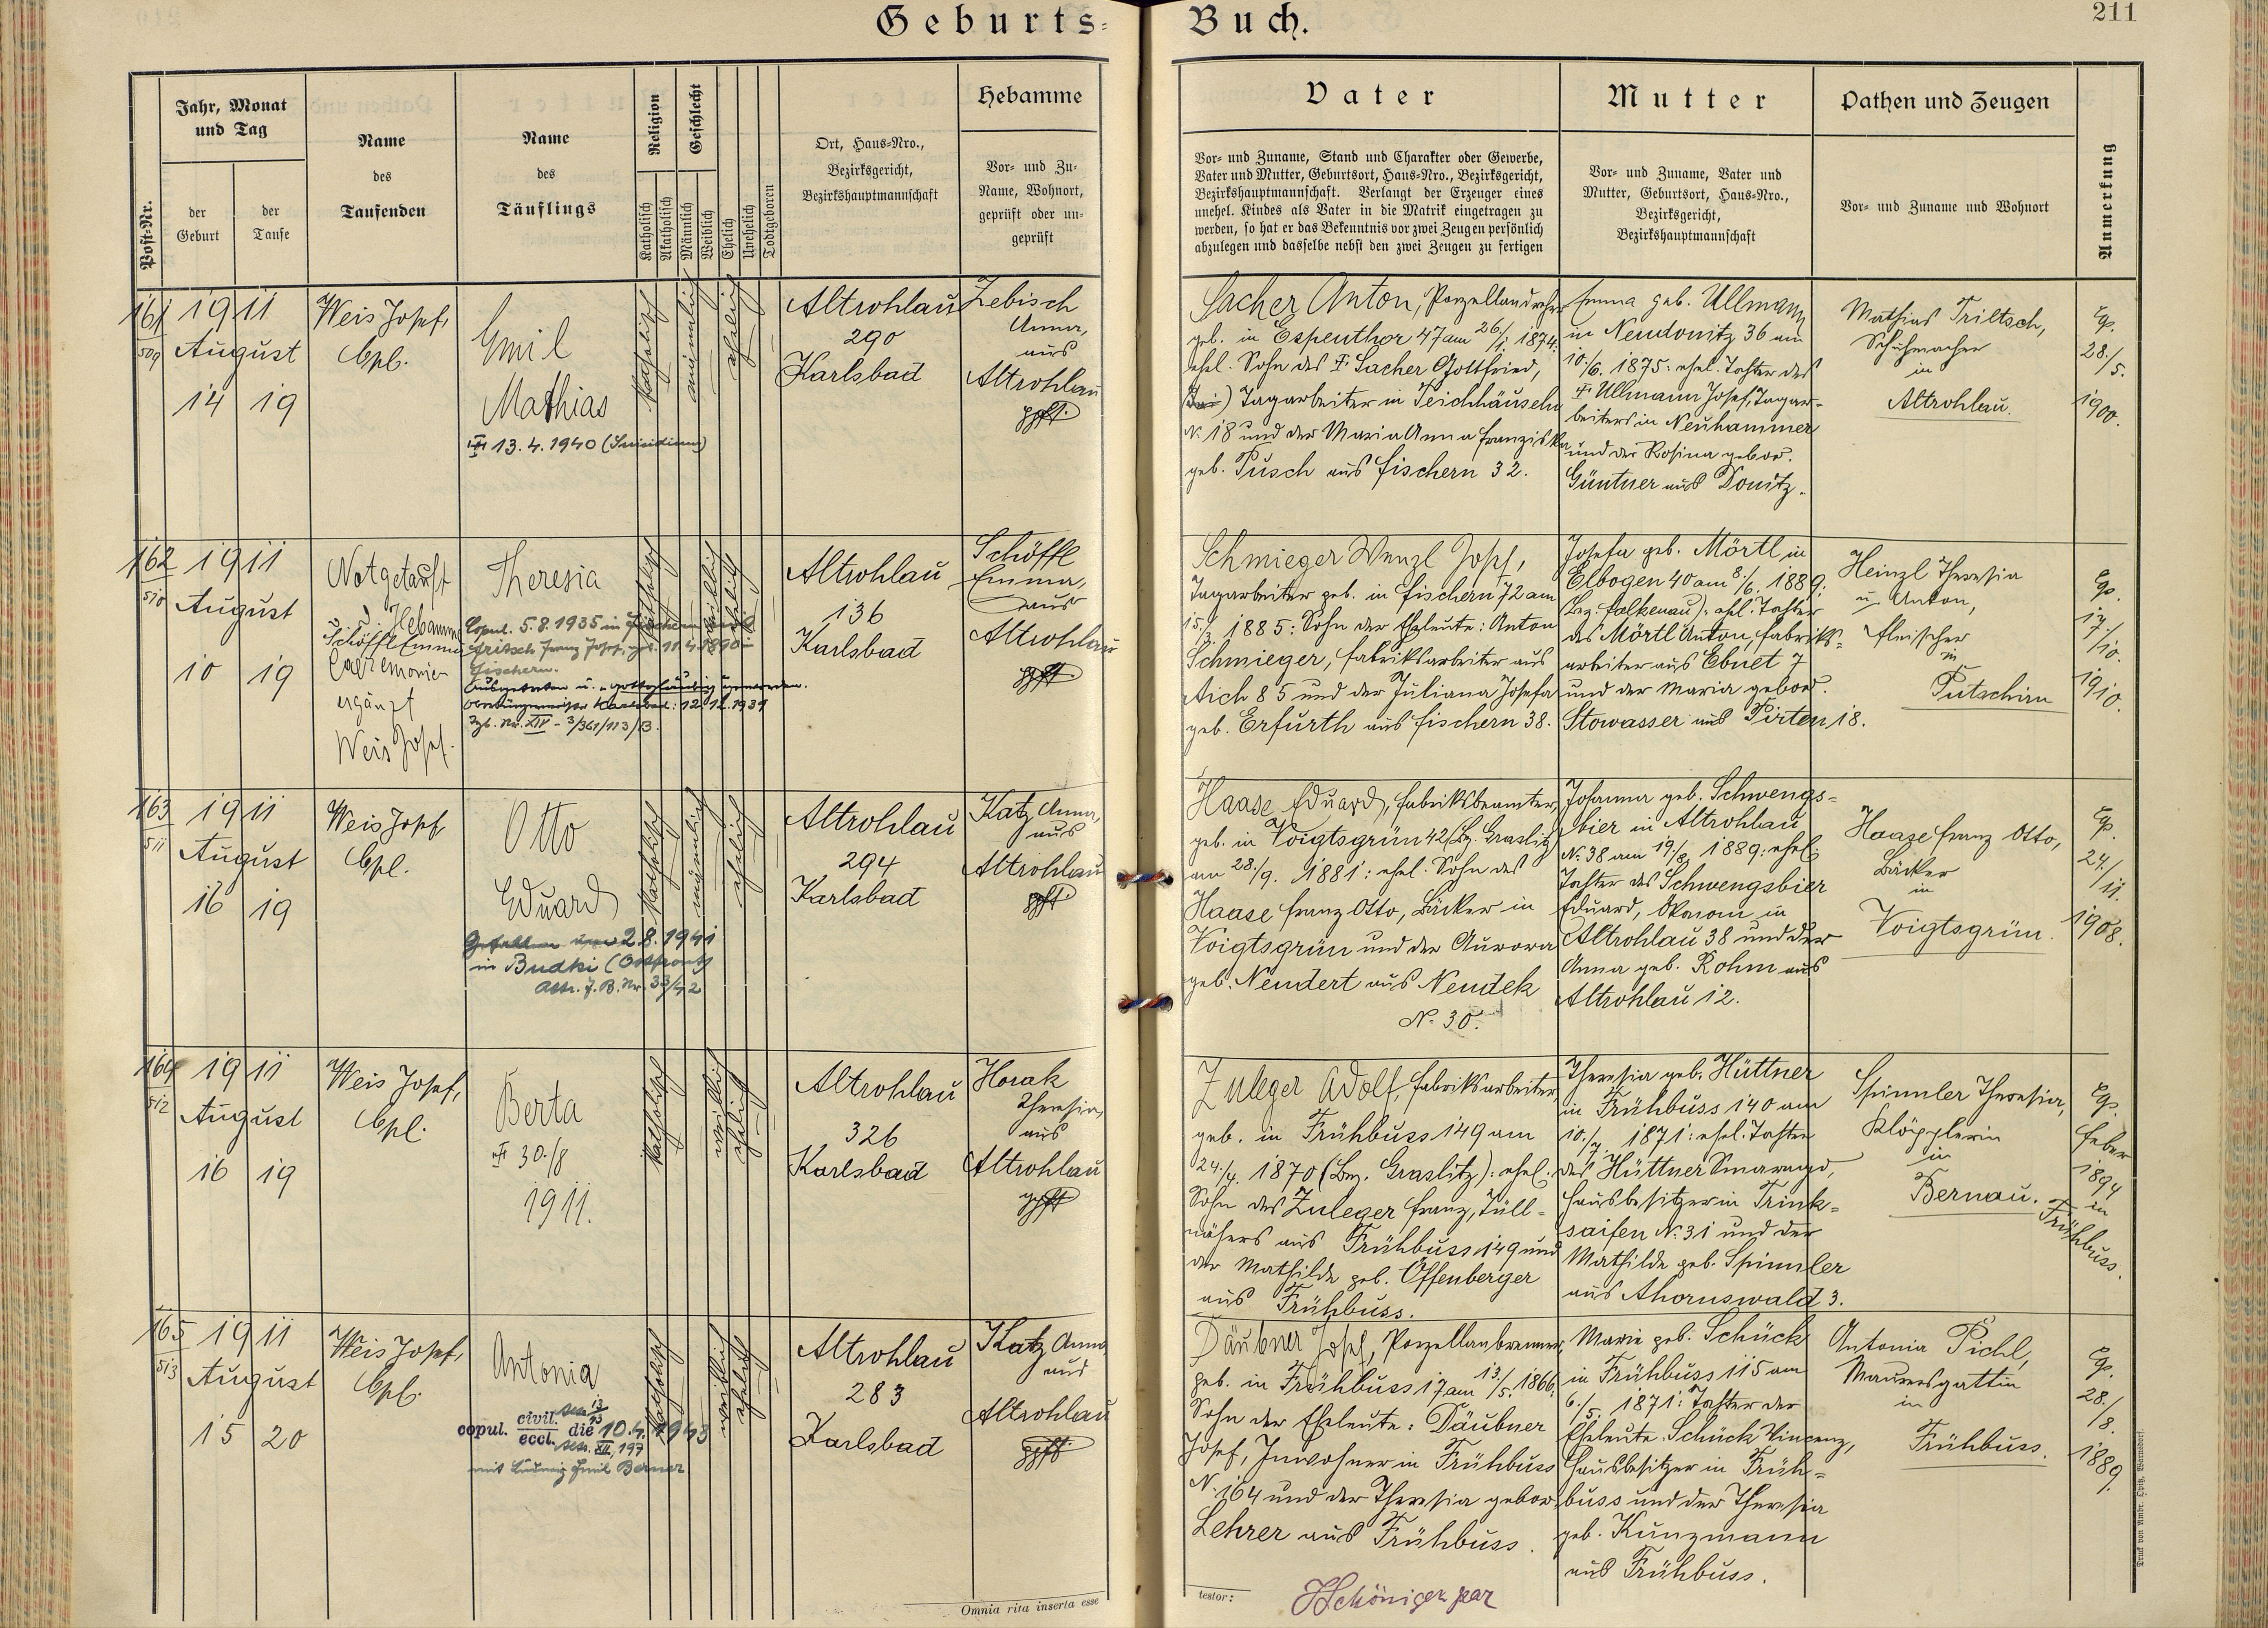 Geburts-
Buch.
211
Post-Nr.
Jahr, Monat
und Tag
der
Geburt
der
Taufe
Name
des
Taufenden
Name
des
Täuflings
Religion
Katholisch
Akatholisch
Geschlecht
Männlich
Weiblich
Ehelich
Unehelich
Todtgeboren
Ort, Haus-Nro.,
Bezirksgericht,
Bezirkshauptmannschaft
Hebamme
Vor- und Zu-
Name, Wohnort,
geprüft oder un-
geprüft
Vater
Vor- und Zuname, Stand und Charakter oder Gewerbe,
Vater und Mutter, Geburtsort, Haus-Nro., Bezirksgericht,
Bezirkshauptmannschaft. Verlangt der Erzeuger eines
unehel. Kindes als Vater in die Matrik eingetragen zu
werden, so hat er das Bekenntnis vor zwei Zeugen persönlich
abzulegen und dasselbe nebst den zwei Zeugen zu fertigen
Mutter
Vor- und Zuname, Vater und
Mutter, Geburtsort, Haus-Nro.,
Bezirksgericht,
Bezirkshauptmannschaft
Pathen und Zeugen
Vor- und Zuname und Wohnort
Anmerkung
161
509
1911
August
14 19
Weis Josef,
Cpl.
Emil
Mathias
13.4.1940 (Suicidium)
katholisch
männlich
ehelich
Altrohlau
290
Karlsbad
Zebisch
Anna,
aus
Altrohlau
gpft.
Sacher Anton, Porzellandreher
geb. in Espenthor 47 am 26./1. 1874:
ehel. Sohn des † Sacher Gottfried,
Tagarbeiter in Teichhäuseln
N. 18 und der Maria Anna Franziska
geb. Pusch aus Fischern 32.
Emma geb. Ullmann
in Neudonitz 36 am
10./6. 1875: ehel. Tochter des
† Ullmann Josef, Tagar-
beiters in Neuhammer
und der Rosina gebor.
Güntner aus Donitz.
Mathias Triltsch,
Schuhmacher
in
Altrohlau.
Cp.
28./
5.
1900.
162
510
1911
August
10 19
Notgetauft
d. Hebamme
Schöffl Emma
Caeremonien
ergänzt
Weis Josef.
Theresia
Copul. 5.8.1935 in Fischern mit
Fritsch Franz Josef,
Fischern.
Ausgetreten u. gottgläubig geworden.
Oberbürgermeister Karlsbad: 12.12.1939
Zgl. Nr. XIV - 3/361/113/B.
katholisch
weiblich
ehelich
Altrohlau
136
Karlsbad
Schöffl
Emma,
aus
Altrohlau
gpft
Schmieger Wenzl Josef,
Tagarbeiter geb. in Fischern 72 am
15./3. 1885: Sohn der Eheleute: Anton
Schmieger, Fabriksarbeiter aus
Aich 85 und der Juliana Josefa
geb. Erfurth aus Fischern 38.
Josefa geb. Mörtl in
Elbogen 40 am 8./6. 1889:
(Bez. Falkenau): ehl. Tochter
des Mörtl Anton, Fabriks-
arbeiter aus Ebnet 7
und der Maria gebor.
Stowasser aus Pirten 18.
Heinzl Theresia
u. Anton,
Fleischer
in
Putschirn
Cp.
17
/10.
1910.
163
511
1911
August
16 19
Weis Josef
Cpl.
Otto
Eduard
Gefallen am 2.8.1941
in Budki (Ostfront)
Attr. F.B. Nr. 33/42
katholisch
männlich
ehelich
Altrohlau
294
Karlsbad
Katz Anna,
aus
Altrohlau
gpft
Haase Eduard, Fabriksbeamter,
geb. in Voigtsgrün 42 (Bz. Graslitz)
am 28./9. 1881: ehel. Sohn des
Haase Franz Otto, Bäcker in
Voigtsgrün und der Aurora
geb. Nendert aus Neudek
N. 30.
Johanna geb. Schwengs-
bier in Altrohlau
N. 38 am 19/8 1889: ehel.
Tochter des Schwengsbier
Eduard, Ökonom in
Altrohlau 38 und der
Anna geb. Rohm aus
Altrohlau 12.
Haaze Franz Otto,
Bäcker
in
Voigtsgrün.
Cp.
24/
11.
1908.
164
512
1911
August
16 19
Weis Josef,
Cpl.
Berta
† 30./8
1911.
katholisch
weiblich
ehelich
Altrohlau
326
Karlsbad
Horak
Theresia,
aus
Altrohlau
gpft
Zuleger Adolf, Fabriksarbeiter,
geb. in Frühbuss 149 am
24./4. 1870 (Bez. Graslitz): ehel.
Sohn des Zuleger Franz, Tüll-
nähers aus Frühbuss 149 und
der Mathilde geb. Offenberger
aus Frühbuss.
Theresia geb. Hüttner
in Frühbuss 140 am
10./7. 1871: ehel. Tochter
des Hüttner Smaragd,
Hausbesitzer in Trink-
saifen N. 31 und der
Mathilde geb. Spinnler
aus Ahornswald 3.
Spinnler Theresia,
Klöpplerin
in
Bernau.
Cp.
Feber
1894
in
Frühbuss.
165
513
1911
August
15 20
Weis Josef,
Cpl.
Antonia
copul. civil. eccl. die 10.4.1943
mit Ludwig Emil Berner
katholisch
weiblich
ehelich
Altrohlau
283
Karlsbad
Katz Anna
aus
Altrohlau
gpft
Däubner Josef, Porzellanbrenner,
geb. in Frühbuss 17 am 13./5. 1866:
Sohn der Eheleute: Däubner
Josef, Inwohner in Frühbuss
N. 164 und der Theresia gebor.
Lehrer aus Frühbuss.
Marie geb. Schück
in Frühbuss 115 am
6./5. 1871: Tochter der
Eheleute Schück Vincenz,
Hausbesitzer in Früh-
buss und der Theresia
geb. Kunzmann
aus Frühbuss.
Antonia Pichl,
Maurersgattin
in
Frühbuss.
Cp.
28.
/8.
1889.
Omnia rita inserta esse
testor:
Schöniger par
Druck von Ambr. Opitz, Warnsdorf.